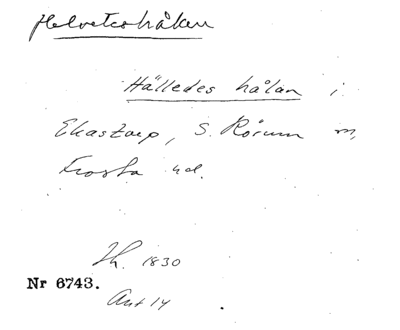 Helveteshålan
Hälledes hålan i
Ekastorp, S. Rörum
Frosta hd.
Th. 1830
Nr 6743.
Ant 14